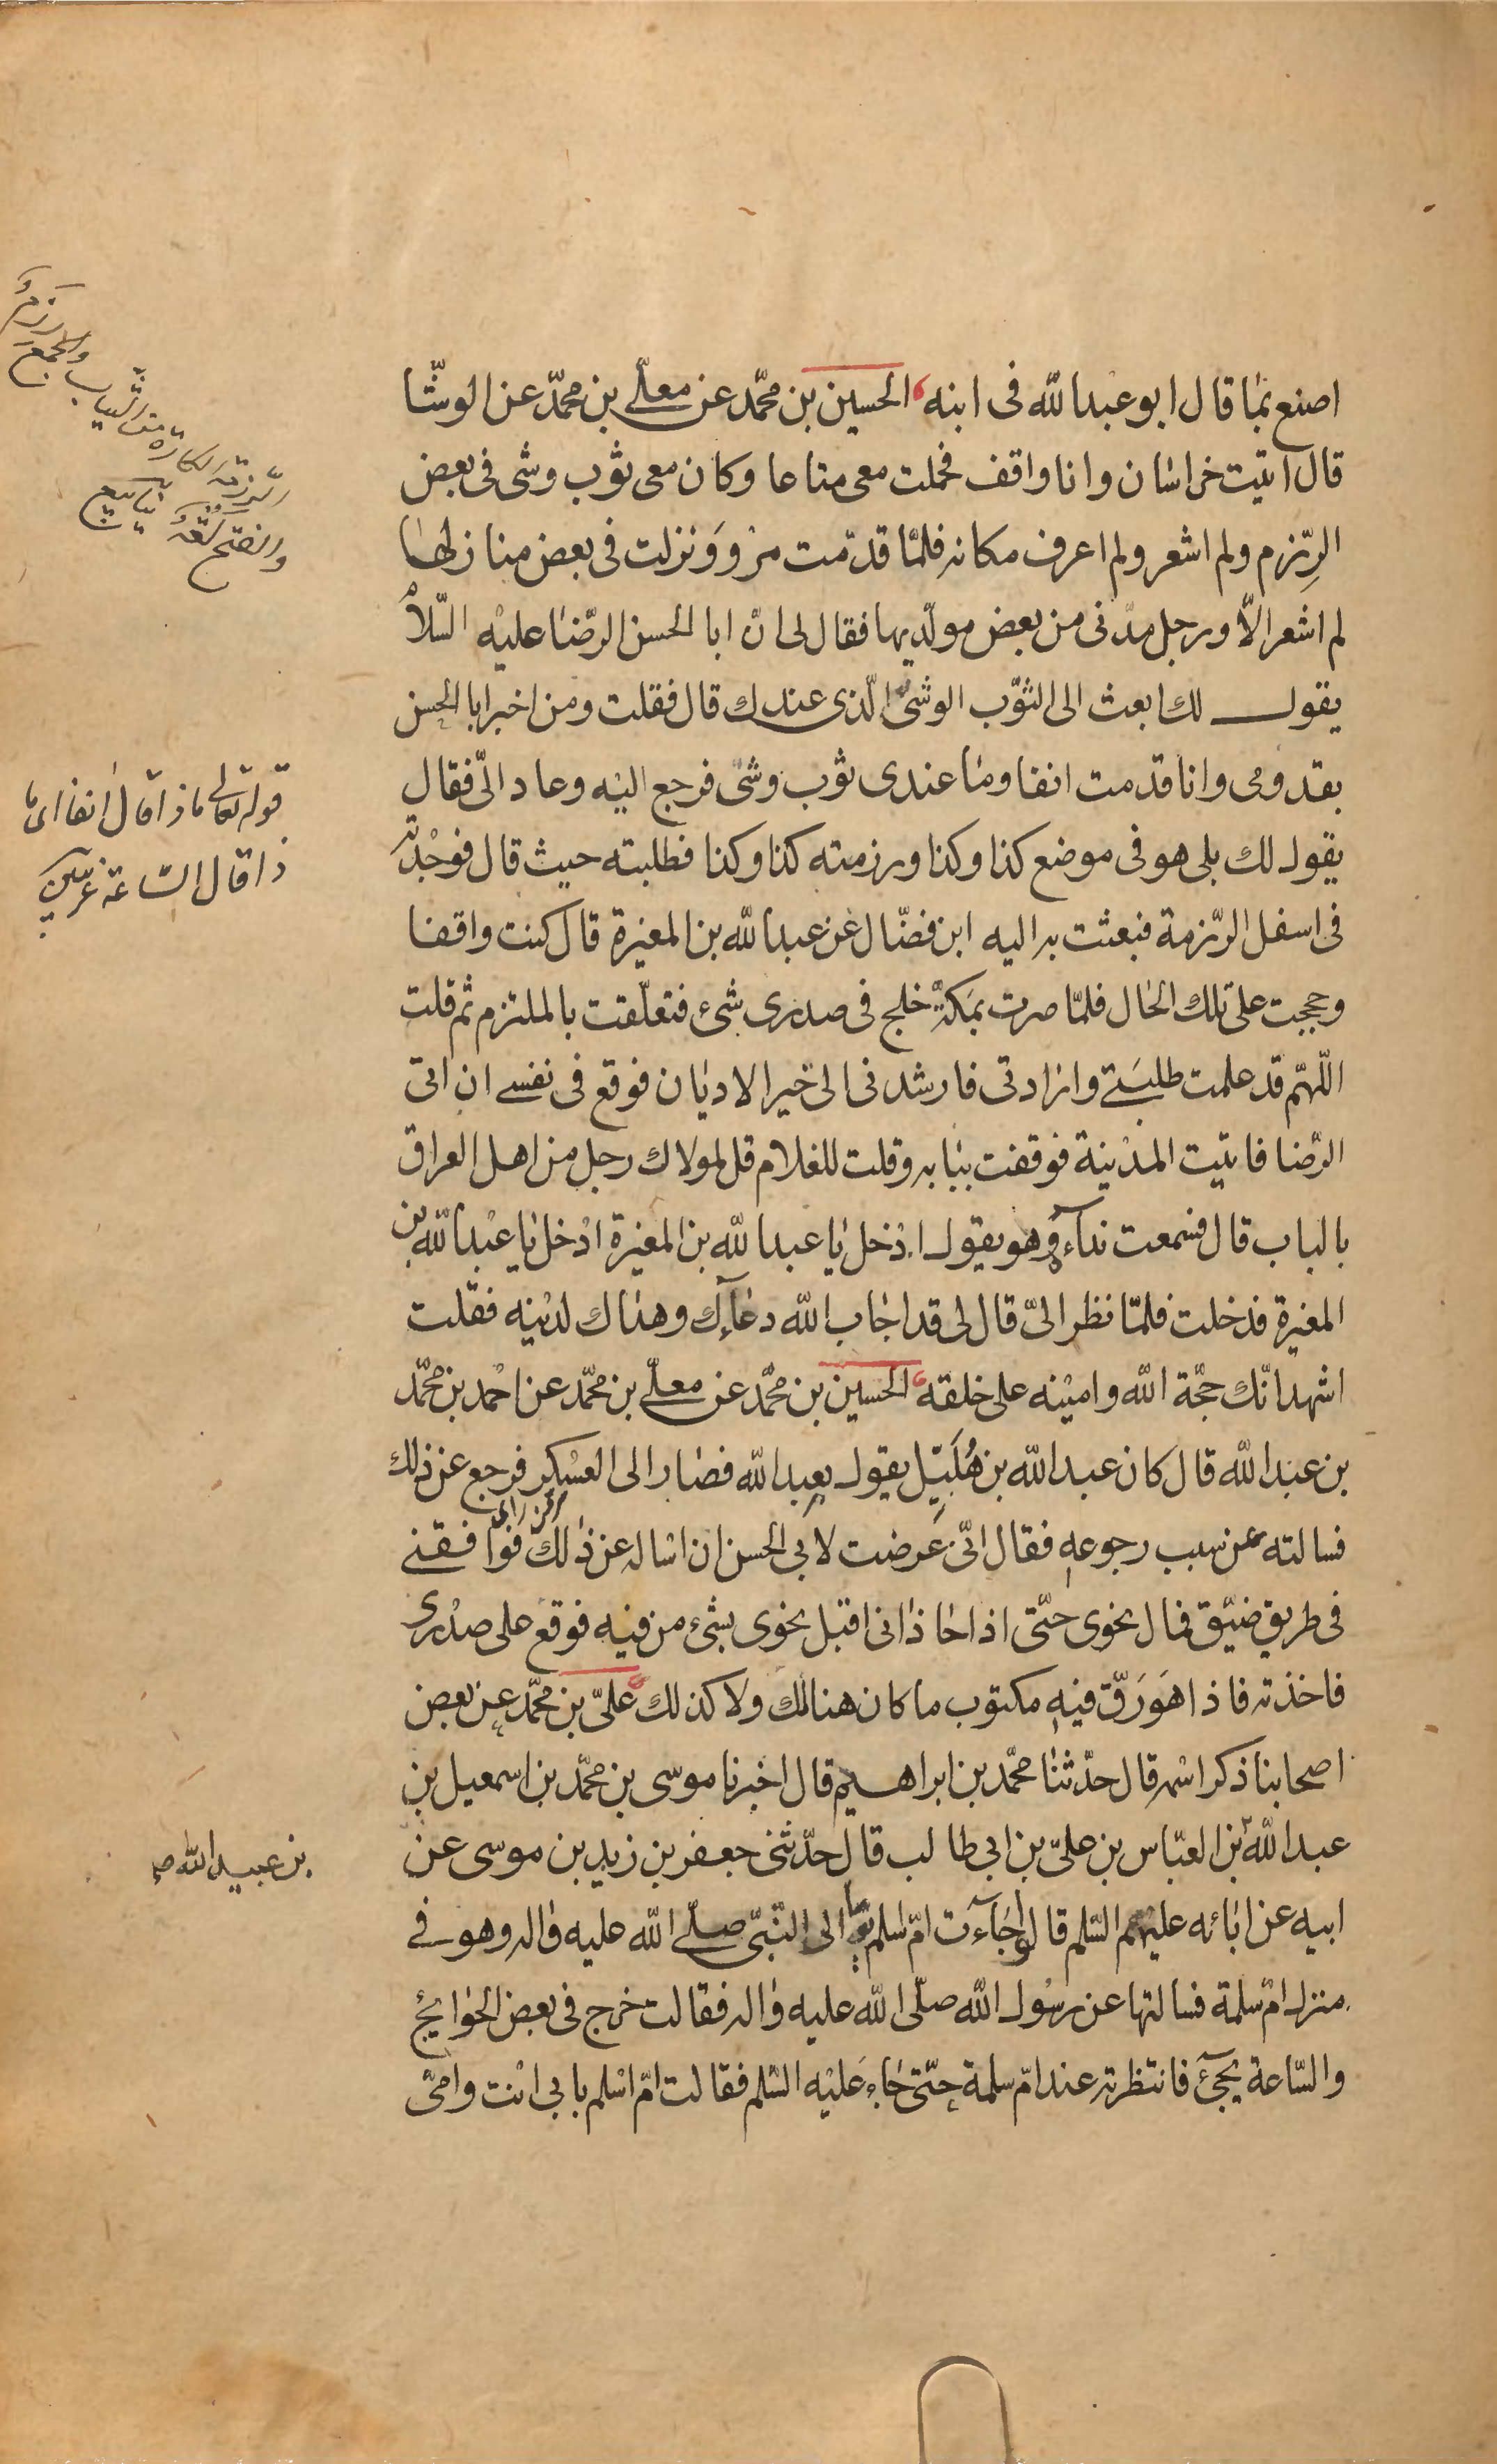 اصنع بما قال ابو عبد الله فى ابنه الحسين بن محمّد عن معلّى بن محمّد عن الوشّا
قال اتيت خراسان وانا واقف فحملت معى متاعا وكان معى ثوب وشى فى بعض
الرِّزم ولم اشعر ولم اعرف مكانه فلمّا قدّمت مرو ونزلت فى بعض منازلها
لم اشعر الّا ورجل مدنى من بعض مولّديها فقال لى انّ ابا الحسن الرّضا عليه السّلام
يقول لك ابعث الى الثّوب الوشىّ الّذى عندك قال فقلت ومن اخبر ابا الحسن
بقدومى وانا قدمت انفا وما عندى ثوب وشى فرجع اليه وعاد الىّ فقال
يقول لك بلى هو فى موضع كذا وكذا ورزمته كذا وكذا فطلبته حيث قال فوجدته
فى اسفل الرّزمة فبعثت به اليه ابن فضّال عن عبد الله بن المغيرة قال كنت واقفا
وحججت على تلك الحال فلمّا صرت بمكّة خلج فى صدرى شىء فتعلّقت بالملتزم ثم قلت
اللّهمّ قد علمت طلبتى وارادتى فارشدنى الى خير الاديان فوقع فى نفسى ان اتى
الرّضا فاتيت المدينة فوقفت ببابه وقلت للغلام قل لمولاك رجل من اهل العراق
بالباب قال فسمعت نداءه وهو يقول ادخل يا عبد الله بن المغيرة ادخل يا عبد الله بن
المغيرة فدخلت فلمّا نظر الىّ قال لى قد اجاب الله دعاءك وهداك لدينه فقلت
اشهد انّك حجّة الله وامينه على خلقه الحسين بن محمّد عن معلّى بن محمّد عن احمد بن محمّد
بن عبد الله قال كان عبد الله بن هُلَيِّل يقول بعبد الله فصار الى العسكر فرجع عن ذلك
فسالته عن سبب رجوعه فقال انّى عرضت لابى الحسن ان اساله عن ذلك فوافقنى
فى طريق ضيّق فمال نحوى حتّى اذا حاذانى اقبل نحوى بشىء من فيه فوقع على صدرى
فاخذته فاذا هو رَقّ فيه مكتوب ما كان هنالك ولا كذلك علىّ بن محمّد عن بعض
اصحابنا ذكر اسمه قال حدّثنا محمّد بن ابراهيم قال اخبرنا موسى بن محمّد بن اسمعيل بن
عبد الله بن العبّاس بن علىّ بن ابى طالب قال حدّثنى جعفر بن زيد بن موسى عن
ابيه عن ابائه عليهم السّلم قالوا جاءت امّ اسلم يوما الى النّبىّ صلّى الله عليه واله وهو فى
منزل امّ سلمة فسالتها عن رسول الله صلّى الله عليه واله فقالت خرج فى بعض الحوايج
والسّاعة يجىء فانتظرته عند امّ سلمة حتّى جاء عليه السّلم فقالت امّ اسلم بابى انت وامّى
الرزمة الكارة من الثياب والجمع رزم
والفتح لغة
قوله تعالى ماذا قال انفا اى ما
ذا قال الساعة
بن عبيد الله